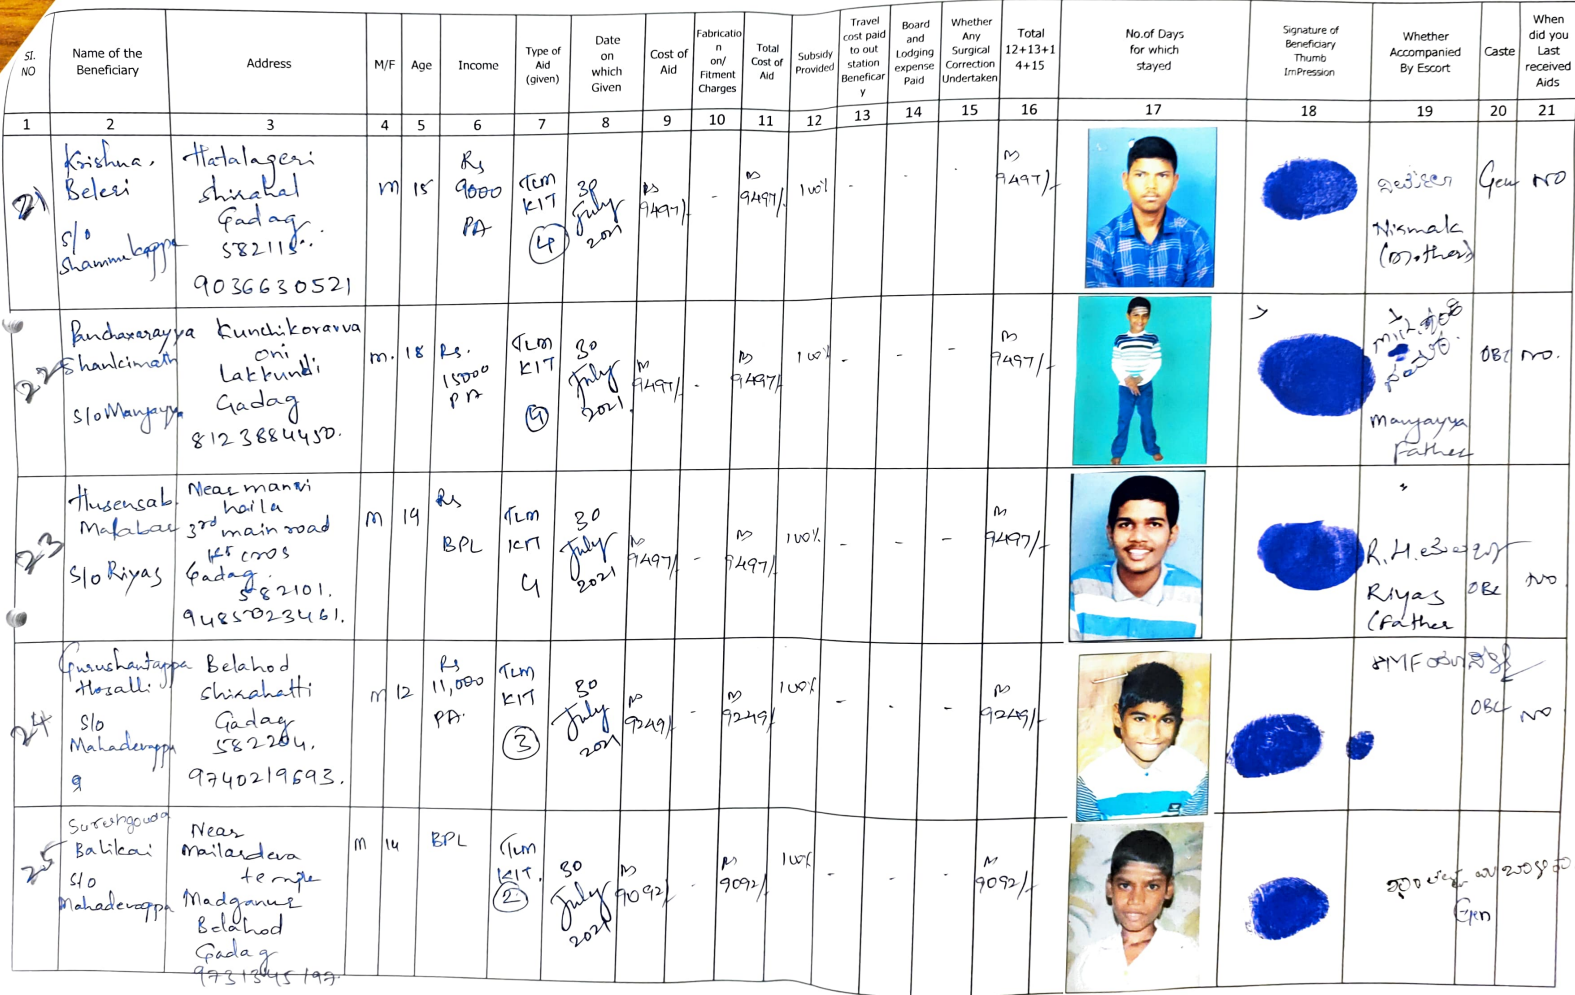 Sl. NO
Name of the Beneficiary
Address
M/F
Age
Income
Type of Aid (given)
Date on which Given
Cost of Aid
Fabricatio n on/ Fitment Charges
Total Cost of Aid
Subsidy Provided
Travel cost paid to out station Beneficar y
Board and Lodging expense Paid
Whether Any Surgical Correction Undertaken
Total 12+13+1 4+15
No.of Days for which stayed
Signature of Beneficiary Thumb ImPression
Whether Accompanied By Escort
Caste
When did you Last received Aids
1 2 3 4 5 6 7 8 9 10 11 12 13 14 15 16 17 18 19 20 21
21
Krishna.
Beleri
S/o
Shammukappa
Hatalageri
Shirahal
Gadag
582115.
9036630521
M
15
Rs
9000
PA
TLM
KIT
4
30
July
2021
Rs
9497/-
-
Rs
9497/-
100%
-
-
-
Rs
9497/-
Nirmala
(Mother)
Gen
NO
22
Panchaxarayya
Shankimath
S/o Manjayya
Kunchikoravva
oni
Lakkundi
Gadag
8123884450.
M.
18
Rs.
15000
PA
TLM
KIT
4
30
July
2021.
Rs
9497/-
-
Rs
9497/-
100%
-
-
-
Rs
9497/-
Manjayya
Father
OBC
NO.
23
Husensab.
Malabar
S/o Riyaz
Near manvi
haila
3rd main road
Kt cros
Gadag.
582101.
9485023461.
M
19
Rs
BPL
TLM
KIT
4
30
July
2021
Rs
9497/-
-
Rs
9497/-
100%
-
-
-
Rs
9497/-
R.H.
Riyaz
(Father
OBC
NO
24
Gurushantappa
Hosalli
S/o
Mahadevappa
Belahod
Shirahatti
Gadag
582204.
9740219693.
M
12
Rs
11,000
PA.
TLM
KIT
3
30
July
2021
Rs
9249/-
-
Rs
9249/-
100%
-
-
-
Rs
9249/-
OBC
NO
25
Sureshgouda
Balikai
S/o
Mahadevappa
Near
Mailardeva
temple
Madganur
Belahod
Gadag
M
14
BPL
TLM
KIT.
2
30
July
2021
Rs
9092/-
-
Rs
9092/-
100%
-
-
-
Rs
9092/-
Gen